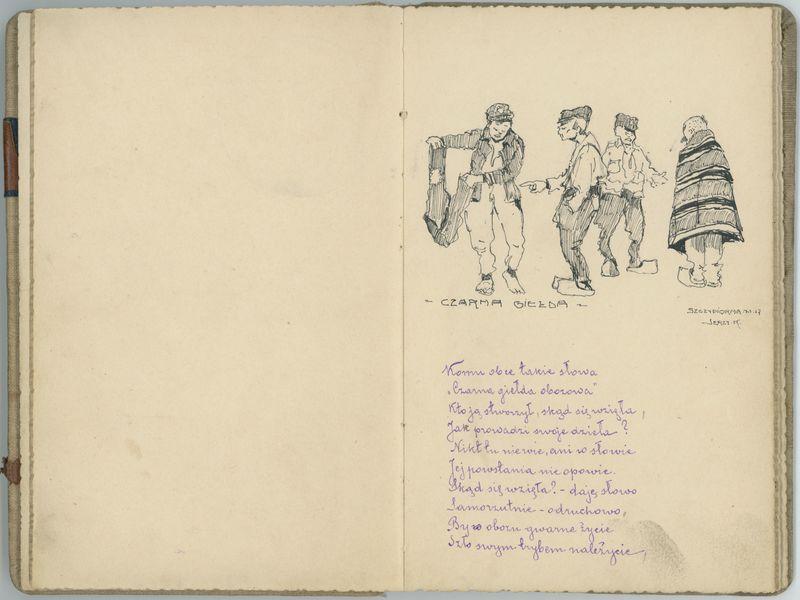 - CZARNA GIEŁDA -
SZCZYPIORNA
- JERZY K.
Komu obce takie słowa
"Czarna giełda obozowa"
Kto ją stworzył, skąd się wzięła,
Jak prowadzi swoje dzieła?
Nikt tu nie wie, ani w słowie
Jej powstania nie opowie.
Skąd się wzięła? - daję słowo
Samorzutnie - odruchowo,
By w obozu gwarne życie
Szło swym trybem należycie,